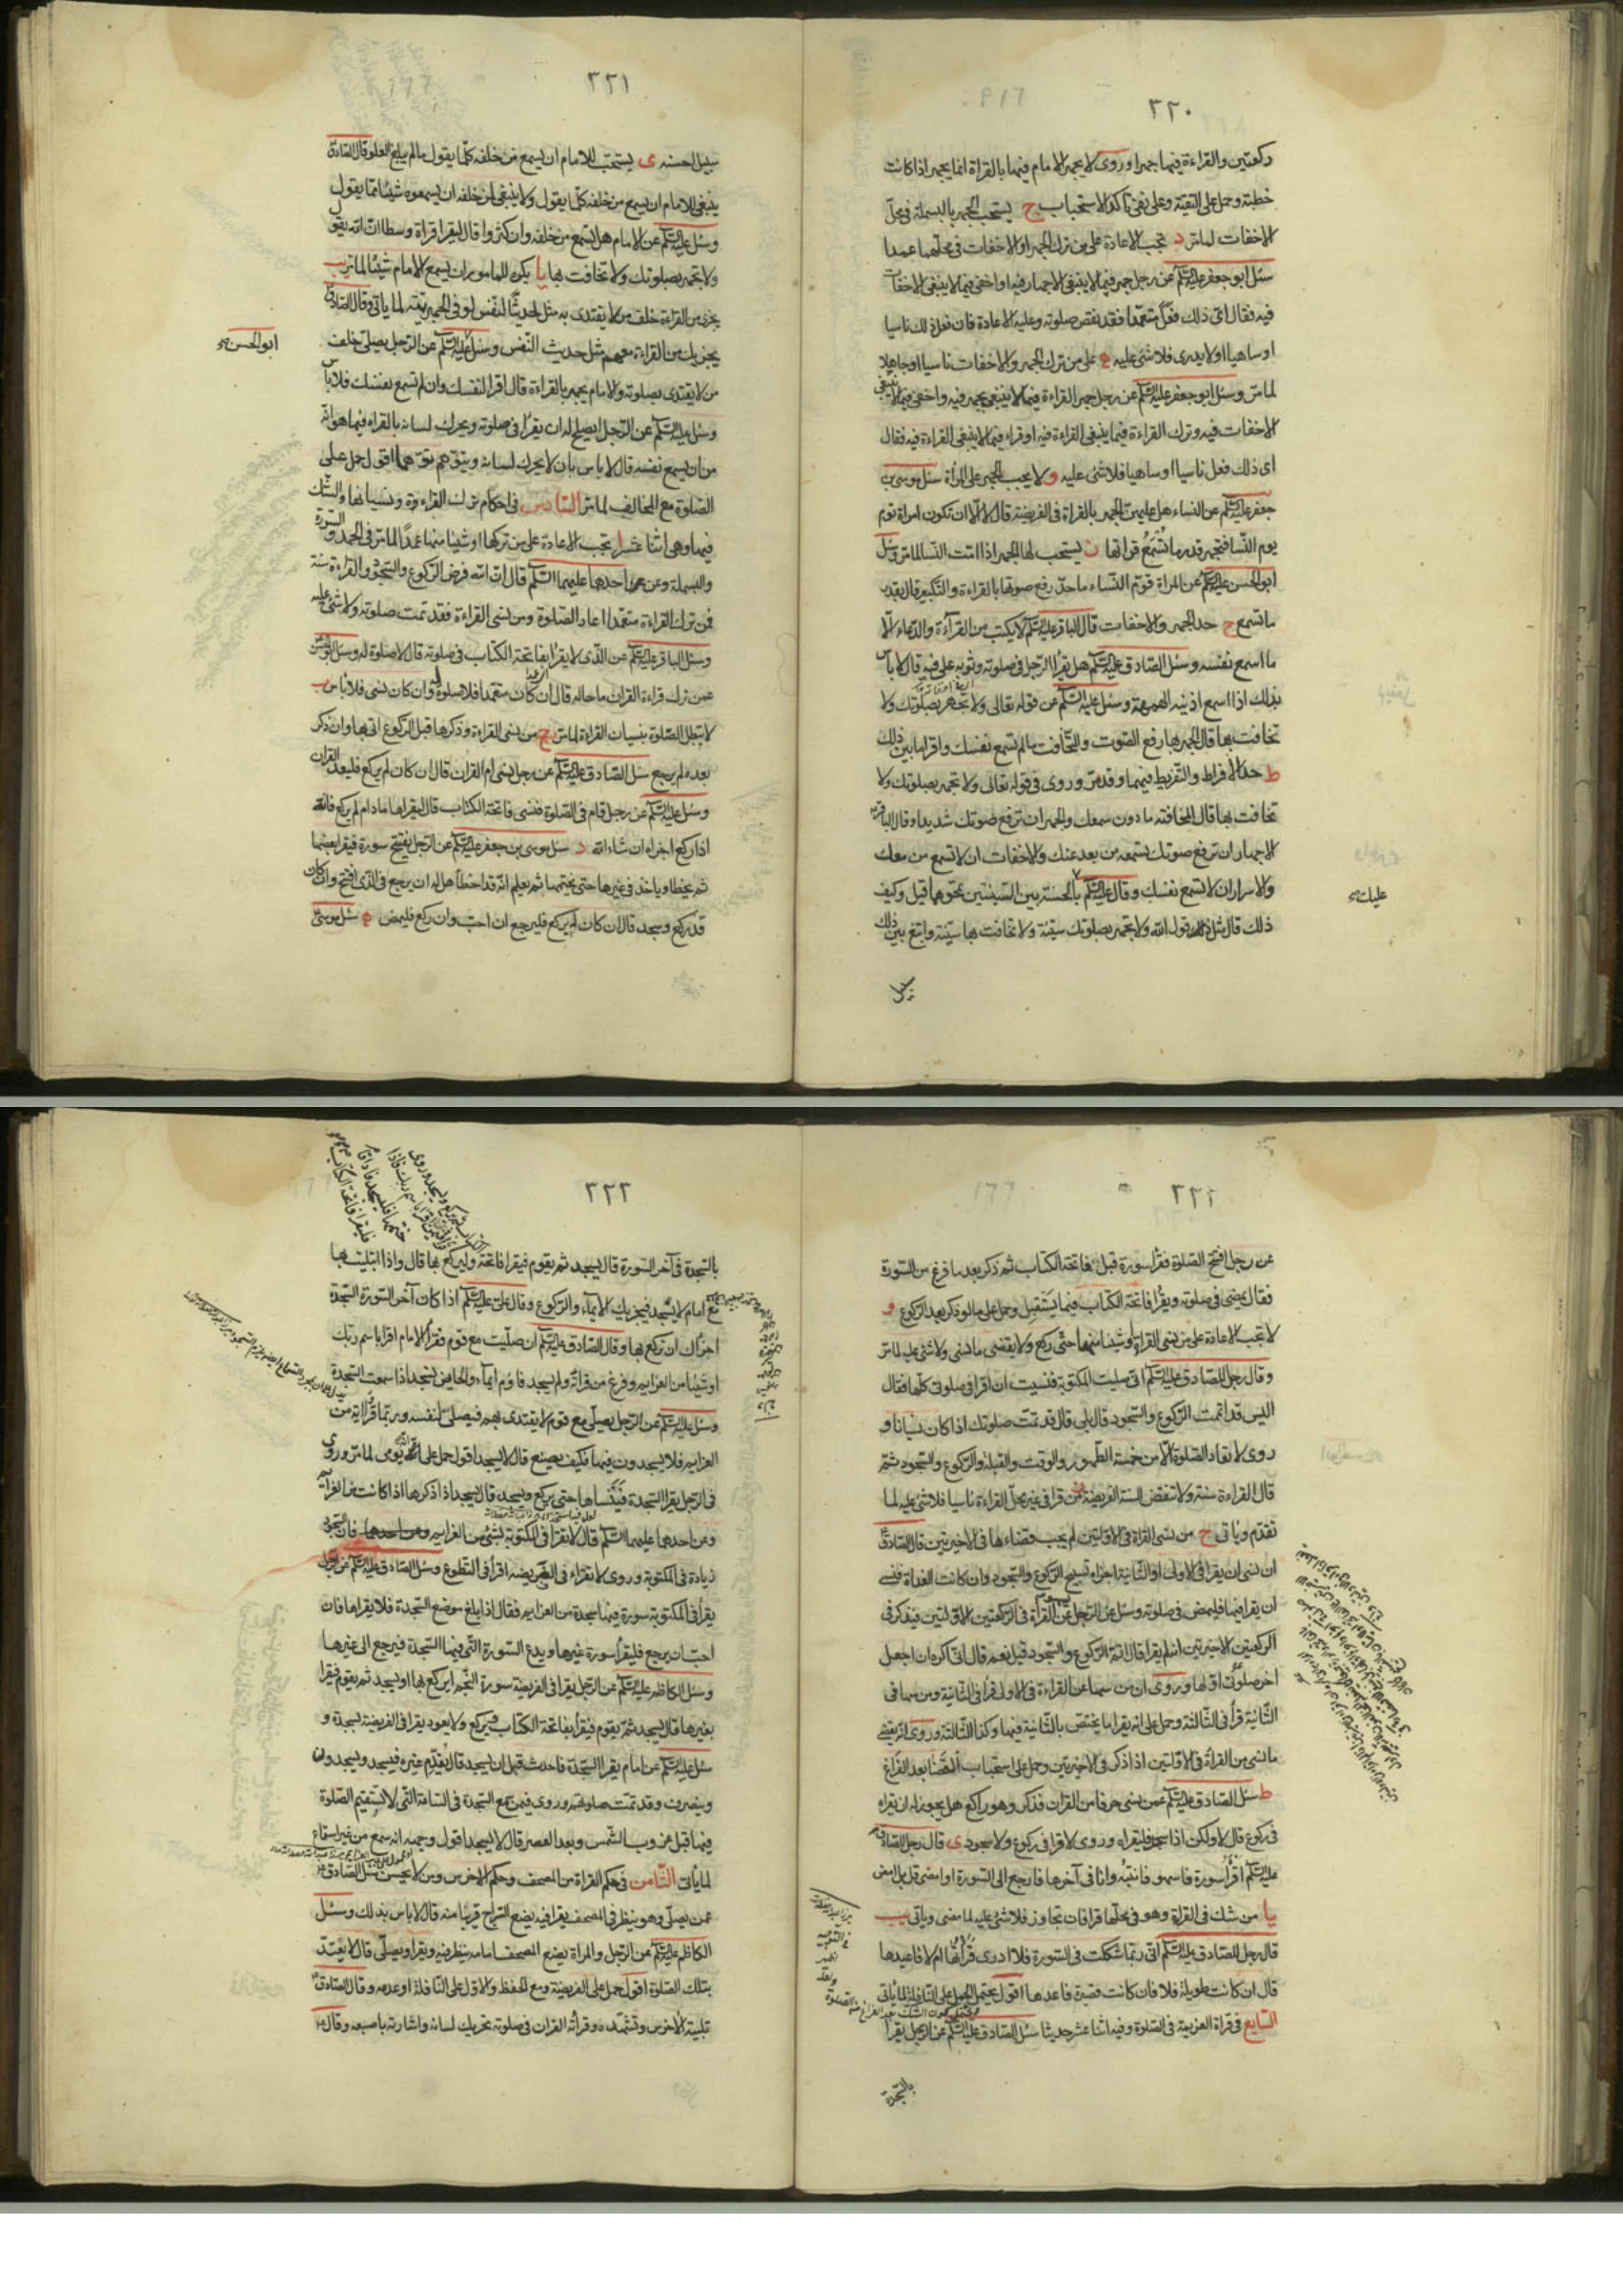 ٣٢٠
ركعتين والقراءة فيها جهرا وروى لا يجهر الامام فيهما بالقراة انما يجهر اذا كانت
خطبة وحمل على التقية وعلى نفى تاكد الاستحباب ج يستحب الجهر بالبسملة فى محلّ
الاخفات لما مرّ د تجب الاعادة على من ترك الجهر او الاخفات فى محلّهما عمدا
سئل ابو جعفر عليه السلم عن رجل جهر فيما لا ينبغى الاجهار فيه او اخفى فيما لا ينبغى الاخفات
فيه فقال اىّ ذلك فعل متعمّدا فقد نقض صلوته وعليه الاعادة فان فعل ذلك ناسيا
او ساهيا او لا يدرى فلا شئ عليه ه على من ترك الجهر والاخفات ناسيا او جاهلا
لما مرّ وسئل ابو جعفر عليه السلم عن رجل جهر القراءة فيما لا ينبغى يجهر فيه واخفى فيما لا ينبغى
الاخفات فيه وترك القراءة فيما ينبغى القراءة فيه او قراء فيما لا ينبغى القراءة فيه فقال
اى ذلك فعل ناسيا او ساهيا فلا شئ عليه و لا يجب الجهر على المراة سئل موسى بن
جعفر عليه السلم عن النساء هل عليهنّ الجهر بالقراة فى الفريضة قال لا الّا ان تكون امراة تؤم
يوم النّسا فتجهر قدر ما تسمع قراتها ز يستحب لها الجهر اذا امّت النّسا لما مرّ وسئل
ابو الحسن عليه السلم عن المراة تؤمّ النّساء ما حدّ رفع صوتها بالقراءة والتّكبير قال بقدر
ما تسمع ح حد الجهر والاخفات قال الباقر عليه السلم لا يكتب من القراءة والدعاء الّا
ما اسمع نفسه وسئل الصّادق عليه السلم هل يقرأ الرّجل فى صلوته وثوبه على فيه قال لا باس
بذلك اذا اسمع اذنيه الهمهمة وسئل عليه السلم عن قوله تعالى ولا تجهر بصلوتك ولا
تخافت بها قال الجهر بها رفع الصّوت والتّخافت ما لم تسمع نفسك واقرا ما بين ذلك
ط حد الافراط والتّفريط فيهما وقد مرّ وروى فى قوله تعالى ولا تجهر بصلوتك ولا
تخافت بها قال المخافتة ما دون سمعك والجهر ان ترفع صوتك شديدا وقال الباقر
الاجهار ان ترفع صوتك يسمعه من بعد عنك والاخفات ان لا تسمع من معك
والاسرار ان لا تسمع نفسك وقال عليه السلم بالحسنة بين السّيئتين تمحوها قيل وكيف
ذلك قال مثل قول الله ولا تجهر بصلوتك سيئة ولا تخافت بها سيئة وابتغ بين ذلك
عليك
سبيل
٣٢١
سبيل الحسنه ى يستحبّ للامام ان يسمع من خلفه كلّما يقول ما لم يبلغ العلو قال الصّادق
ينبغى للامام ان يسمع من خلفه كلّما يقول ولا ينبغى لمن خلفه ان يسمعوه شيئا ممّا يقول
وسئل عليه السلم عن الامام هل يسمع من خلفه وان كثروا قال ليقرا قراة وسطا انّ الله يقول
ولا تجهر بصلوتك ولا تخافت بها يا يكره للماموم ان يسمع الامام شيئا لما مرّ يب
يجزى من القراءة خلف من لا يقتدى به مثل حديث النّفس لو فى الجهريّة لما ياتى وقال الصّادق
يجزيك من القراءة معهم مثل حديث النّفس وسئل عليه السلم عن الرّجل يصلّى خلف
من لا يقتدى بصلوته والامام يجهر بالقراءة قال اقرا لنفسك وان لم تسمع نفسك فلا باس
وسئل عليه السلم عن الرّجل ايصلح له ان يقرأ فى صلوته ويحرك لسانه بالقراءة فى لهواته
من ان يسمع نفسه قال لا باس بان لا يحرك لسانه ويتوّهم توّهما اقول حمل على
الصّلوة مع المخالف لما مرّ السّادس فى احكام ترك القراءة ونسيانها والشّك
فيها وهى اثنا عشر ا تجب الاعادة على من تركها او شيئا منها عمدًا لما مرّ فى الحمد والسّورة
والبسملة وعن احدهما عليهما السّلم قال انّ الله فرض الرّكوع والسّجود والقراءة سنة
فمن ترك القراءة متعمّدا اعاد الصّلوة ومن نسى القراءة فقد تمت صلوته ولا شئ عليه
وسئل الباقر عليه السلم عن الّذى لا يقرأ بفاتحة الكتاب فى صلوته قال لا صلوة له وسئل ابو الحسن
عمن ترك قراءة القران ما حاله قال ان كان متعمّدا فلا صلوة له وان كان نسى فلا باس ب
لا تبطل الصّلوة بنسيان القراءة لما مرّ ج من نسى القراءة وذكرها قبل الرّكوع اتى بها وان ذكر
بعده لم يرجع سئل الصّادق عليه السلم عن رجل نسى ام القران قال ان كان لم يركع فليعد ام القران
وسئل عليه السلم عن رجل قام فى الصّلوة فنسى فاتحة الكتاب قال ليقراها ما دام لم يركع فانّه
اذا ركع اجزاه ان شاء الله د سئل موسى بن جعفر عليه السلم عن الرّجل يفتتح سورة فيقرا بعضها
ثم يخطا وياخذ فى غيرها حتى يختمها ثم يعلم انّه قد اخطأ هل له ان يرجع فى الّذى افتتح وان كان
قد ركع وسجد قال ان كان لم يركع فليرجع ان احبّ وان ركع فليمض ه سئل موسى
ابو الحسن
٣٢٢
عن رجل افتتح الصّلوة فقرأ سورة قبل فاتحة الكتاب ثم ذكر بعد ما فرغ من السّورة
فقال يمضى فى صلوته ويقرأ فاتحة الكتاب فيما يستقبل وحمل على ما لو ذكر بعد الرّكوع و
لا تجب الاعادة على من نسى القراءة او شيئا منها حتّى ركع ولا يقضى ما نسى ولا شئ عليه لما مرّ
وقال رجل للصّادق عليه السلم انّى صليت المكتوبة فنسيت ان اقرا فى صلوتى كلّها فقال
اليس قد اتممت الرّكوع والسّجود قال بلى قال قد تمّت صلوتك اذا كان نسيانا و
روى لا تعاد الصّلوة الّا من خمسة الطّهور والوقت والقبلة والرّكوع والسّجود ثمّ
قال القراءة سنة ولا تنقض السنة الفريضة ز من قرا فى غير محلّ القراءة ناسيا فلا شئ عليه لما
تقدّم وياتى ح من نسى القراة فى الاوليين لم يجب قضاءها فى الاخيرتين قال الصّادق
ان نسى ان يقرا فى الاولى او الثّانية اجزاه تسبيح الرّكوع والسّجود وان كانت الغداة فنسى
ان يقرا فيها فليمض فى صلوته وسئل عن الرّجل عن القراة فى الرّكعتين الاوّلتين فيذكر فى
الرّكعتين الاخيرتين انه لم يقرا قال اتمّ الرّكوع والسّجود قيل نعم قال انّى اكره ان اجعل
اخر صلوتى اوّلها وروى ان من سها عن القراءة فى الاولى قرأ فى الثّانية ومن سها فى
الثّانية قرأ فى الثّالثة وحمل على انه يقرا ما يختص بالثّانية فيها وكذا الثّالثة وروى انّه يقضى
ما نسى من القراة فى الاوّلتين اذا ذكر فى الاخيرتين وحمل على استحباب القضا بعد الفراغ
ط سئل الصّادق عليه السلم عمن نسى حرفا من القران فذكر وهو راكع هل يجوز له ان يقراه
فى ركوع قال لا ولكن اذا سجد فليقراه وروى لا قرا فى ركوع ولا سجود ى قال رجل للصّادق
عليه السلم اقرأ سورة فاسهو فانتبه وانا فى آخرها فارجع الى السّورة او امضى قال بل امض
يا من شك فى القراة وهو فى محلّها قرا فان تجاوز فلا شئ عليه لما مضى وياتى يب
قال رجل للصّادق عليه السلم انّى ربّما شككت فى السّورة فلا ادرى قرأتها ام لا فاعيدها
قال ان كانت طويلة فلا وان كانت قصيرة فاعدها اقول يحتمل الحمل على النّافلة لما يأتى
السّابع فى قراة العزيمة فى الصّلوة وفيه اثنا عشر حديثا سئل الصّادق عليه السلم عن الرّجل يقرا
بالسّجدة
٣٢٣
بالسّجدة فى آخر السّورة قال يسجد ثم يقوم فيقرا فاتحة وليركع بها قال واذا ابتليت بها
مع امام لا يسجد فيجزيك الايماء والرّكوع وقال علىّ عليه السلم اذا كان آخر السّورة السّجدة
اجزاك ان تركع بها وقال الصّادق عليه السلم ان صلّيت مع قوم فقرأ الامام اقرا باسم ربّك
او شيئا من العزايم وفرغ من قراته ولم يسجد فاوم ايماء والحايض تسجد اذا سمعت السّجدة
وسئل عليه السلم عن الرّجل يصلّى مع قوم لا يقتدى بهم فيصلّى لنفسه وربّما قرأ اية من
العزايم فلا يسجدون فيها فكيف يصنع قال لا يسجد اقول حمل على انّه يومى لما مرّ وروى
فى الرّجل يقرا السّجدة فينساها حتى يركع ويسجد قال يسجد اذا ذكرها اذا كانت من العزائم
وعن احدهما عليهما السّلم قال لا تقرا فى المكتوبة بشئ من العزايم فانّ السّجود
زيادة فى المكتوبة وروى لا تقراء فى الفريضة اقرأ فى التّطوع وسئل الصّادق عليه السلم عن الرّجل
يقرأ فى المكتوبة سورة فيها سجدة من العزايم فقال اذا بلغ موضع السّجدة فلا يقراها فان
احبّ ان يرجع فليقرا سورة غيرها ويدع السّورة الّتى فيها السّجدة فيرجع الى غيرها
وسئل الكاظم عليه السلم عن الرّجل يقرا فى الفريضة سورة النّجم ايركع بها او يسجد ثم يقوم فيقرا
بغيرها قال يسجد ثمّ يقوم فيقرأ بفاتحة الكتاب ويركع ولا يعود يقرا فى الفريضة بسجدة و
سئل عليه السلم عن امام يقرا السّجدة فاحدث قبل ان يسجد قال يقدّم غيره فيسجد ويسجدون
وينصرف وقد تمّت صلوتهم وروى فيمن سمع السّجدة فى السّاعة الّتى لا تستقيم الصّلوة
فيها قبل غروب الشّمس وبعد العصر قال لا يسجد اقول وجهه انه سمع من غير استماع
لما يأتى الثّامن فى حكم القراة من المصحف وحكم الاخرس ومن لا يحسن سئل الصّادق
عمن يصلّى وهو ينظر فى المصحف يقرا فيه يضع السّراج قريبا منه قال لا باس بذلك وسئل
الكاظم عليه السلم عن الرّجل والمراة يضع المصحف امامه ينظر فيه ويقرا ويصلّى قال لا يعتدّ
بتلك الصّلوة اقول حمل على الفريضة ومع الحفظ والاوّل على النّافلة او عدمه وقال الصّادق
تلبية الأخرس وتشهّده وقرأته القران فى صلوته تحريك لسانه واشارته باصبعه وقال